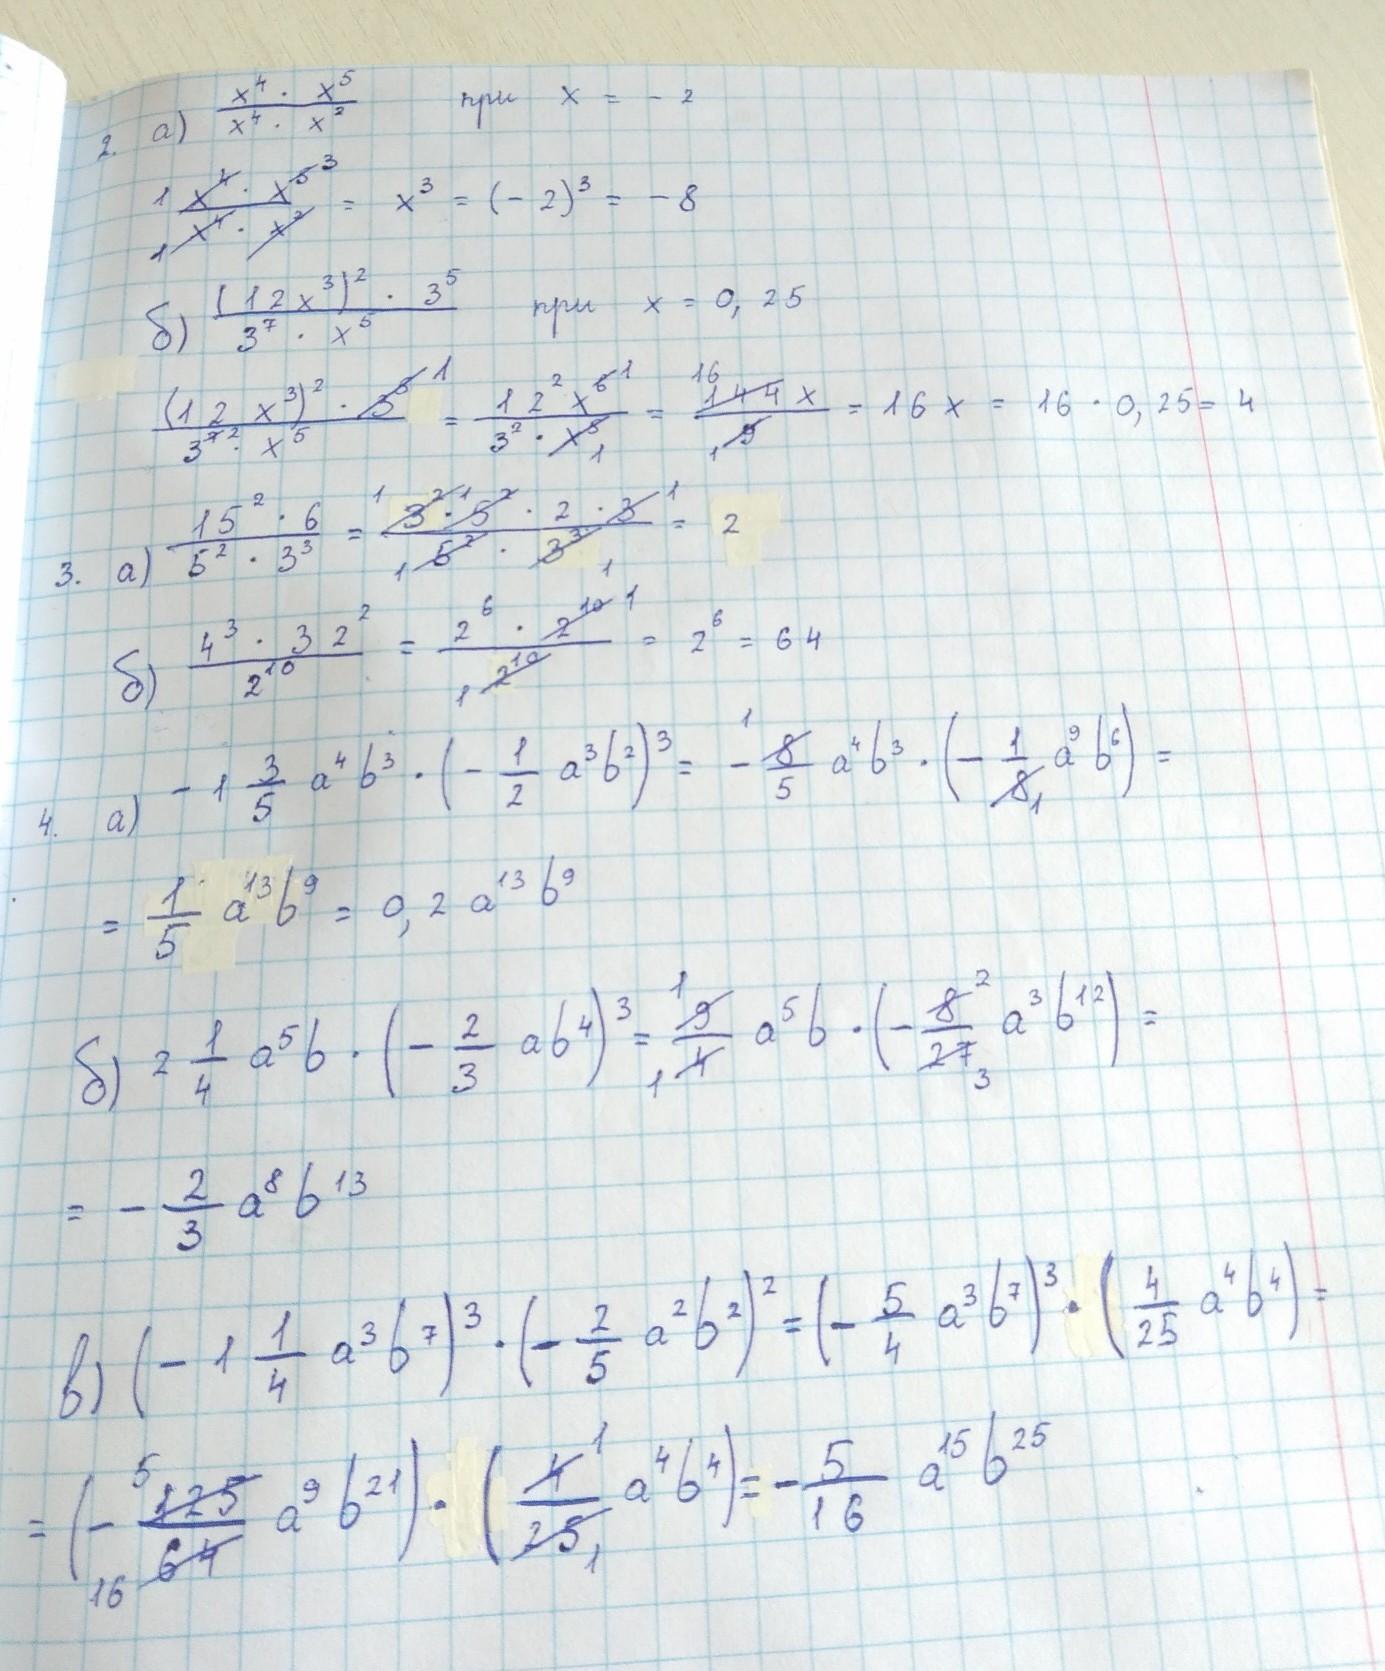 2. а) (x⁴ · x⁵)/(x⁴ · x²) при x = - 2
1 (x⁴ · x⁵ ³)/(1 x⁴ · x²) = x³ = (- 2)³ = - 8
б) ((12x³)² · 3⁵)/(3⁷ · x⁵) при x = 0,25
((12x³)² · 3⁵ 1)/(3⁷ ² · x⁵) = (12² x⁶ 1)/(3² · x⁵ 1) = (16 144 x)/(1 9) = 16x = 16 · 0,25 = 4
3. а) (15² · 6)/(5² · 3³) = (1 3² · 1 5² · 2 · 3 1)/(1 5² · 3³ 1) = 2
б) (4³ · 32²)/2¹⁰ = (2⁶ · 2¹⁰ 1)/(1 2¹⁰) = 2⁶ = 64
4. а) - 1 3/5 a⁴b³ · (- 1/2 a³b²)³ = - 1 8/5 a⁴b³ · (- 1/8 1 a⁹b⁶) =
= 1/5 a¹³b⁹ = 0,2 a¹³b⁹
б) 2 1/4 a⁵b · (- 2/3 ab⁴)³ = 1 9/1 4 a⁵b · (- 8 2/27 3 a³b¹²) =
= - 2/3 a⁸b¹³
в) (- 1 1/4 a³b⁷)³ · (- 2/5 a²b²)² = (- 5/4 a³b⁷)³ · (4/25 a⁴b⁴) =
= (- 5 125/16 64 a⁹b²¹) · (4 1/25 1 a⁴b⁴) = - 5/16 a¹⁵b²⁵